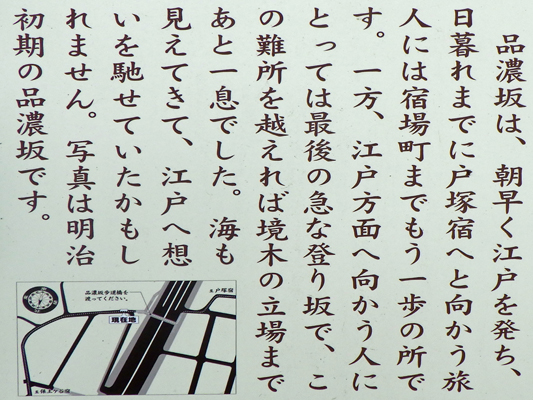 品濃坂は、朝早く江戸を発ち、
日暮れまでに戸塚宿へと向かう旅
人には宿場町までもう一歩の所で
す。一方、江戸方面へ向かう人に
とっては最後の急な登り坂で、こ
の難所を越えれば境木の立場まで
あと一息でした。海も
見えてきて、江戸へ想
いを馳せていたかもし
れません。写真は明治
初期の品濃坂です。
品濃坂歩道橋を
渡ってください。
至戸塚宿
現在地
至保土ケ谷宿